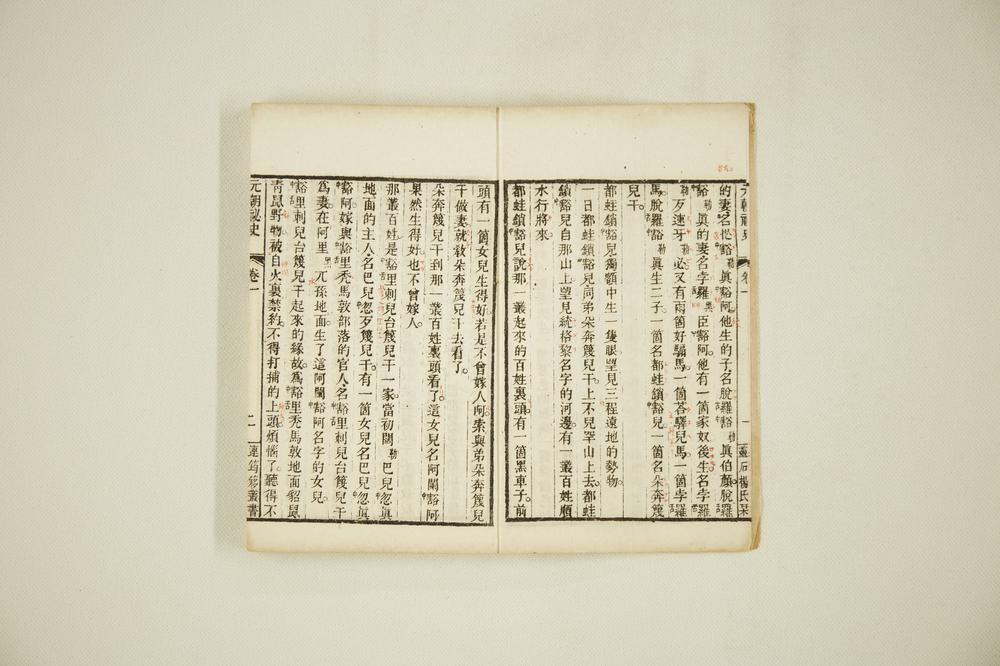 元朝祕史 卷一 一 靈石楊氏栞
的妻名忙豁勒眞豁阿他生的子名脫羅豁勒眞伯顏。脫羅
豁勒眞的妻名孛羅黑臣豁阿。他有一箇家奴後生名孛羅
勒歹速牙勒必又有兩箇好騸馬。一箇荅驛兒馬。一箇孛羅
馬。脫羅豁勒眞生二子一箇名都蛙鎖豁兒一箇名朶奔篾
兒干。
都蛙鎖豁兒獨額中生一隻眼望見三程遠地的勢物。
一日都蛙鎖豁兒同弟朶奔篾兒干。上不兒罕山上去。都蛙
鎖豁兒自那山上望見統格黎名字的河邊。有一叢百姓順
水行將來。
都蛙鎖豁兒說那一叢起來的百姓裏頭。有一箇黑車子。前
頭有一箇女兒生得好。若是不曾嫁人。阿。索與弟朶奔篾兒
干做妻就敎朶奔篾兒干去看了。
朶奔篾兒干到那一叢百姓裏頭看了。這女兒名阿闌豁阿
果然生得好。也不曾嫁人。
那叢百姓是豁里剌兒台篾兒干一家當初闊勒巴兒忽眞
地面的主人名巴兒忽歹篾兒干。有一箇女兒名巴兒忽眞
豁阿嫁與豁里禿馬敦部落的官人名豁里剌兒台篾兒干
爲妻在阿里黑兀孫地面。生了這阿闌豁阿名字的女兒。
豁里剌兒台篾兒干起來的緣故。爲豁里禿馬敦地面貂鼠
青鼠野物被自火裏禁約。不得打捕的上頭煩惱了。聽得不
元朝祕史 卷一 二 連筠簃叢書